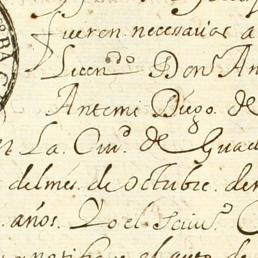 fueren necesarias a
Licen.do Don An
Antemi Diego de
en La Ciu.d de Guad
del mes. de octubre. de
. años. Yo el
el auto de